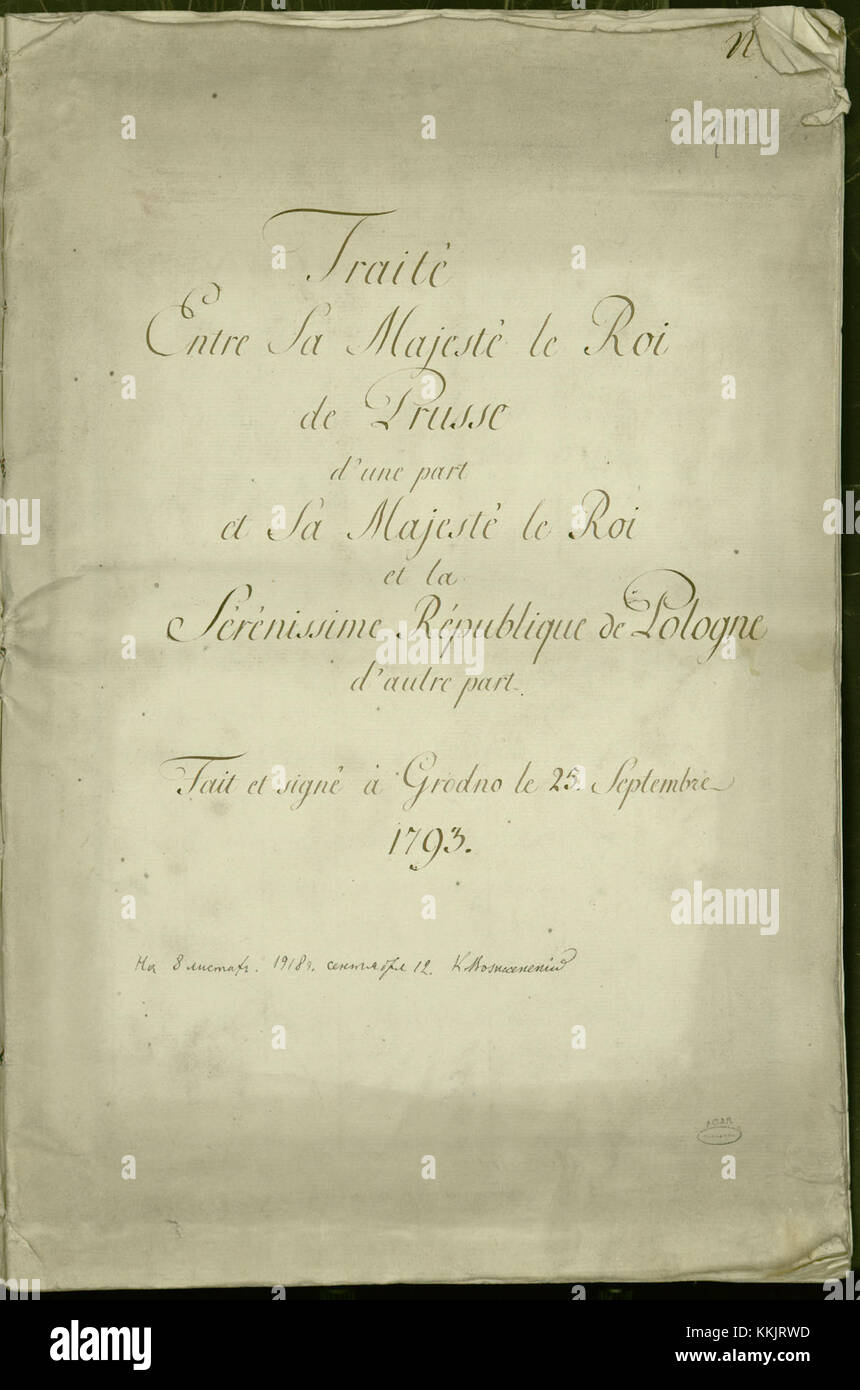 n
Traité
Entre Sa Majesté le Roi
de Prusse
d'une part
et Sa Majesté le Roi
et la
Sérénissime République de Pologne
d'autre part.
Fait et signé à Grodno le 25. Septembre
1793.
На 8 листахъ. 1918 г. сентября 12.
alamy
alamy
a
alamy
Image ID: KKJRWD
www.alamy.com